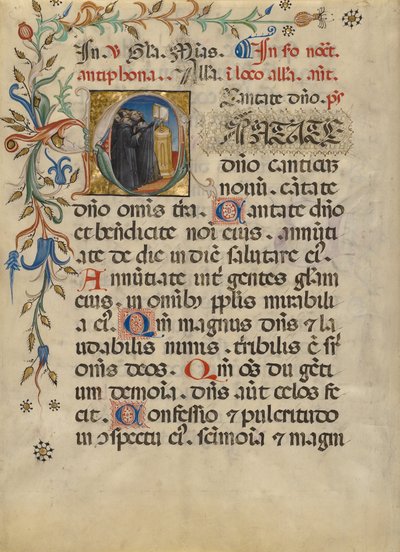 In V Gla. Mias. In fo noct.
antiphona.. Alla. i loco alla. ant.
Cantate dño. ps
CANTATE
dño canticũ
nouũ. cãtate
dño omis tr̃a. Cantate dño
et benedicite noĩ eius. annũti
ate de die in diẽ salutare ei.
Annũtiate int̃ gentes gl̃am
eius. in omib; pp̃lis mirabili
a ei. Qm̃ magnus dñs ⁊ la
udabilis nimis. tr̃ribilis ẽ sr̃
omis deos. Qm̃ oẽs dii gẽti
um demoĩa. dñs aũt celos fe
cit. Confessio ⁊ pulcritudo
in ↄspectu ei. scĩmoĩa ⁊ magni